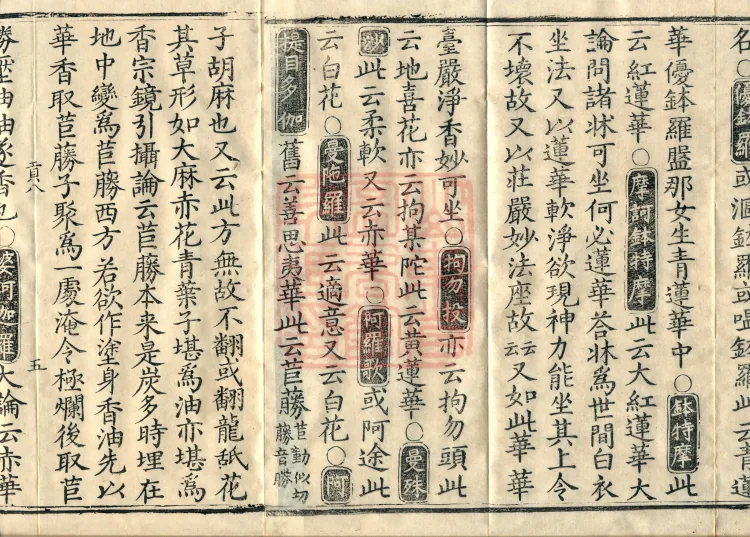 名〇優鉢羅或漚鉢羅或嗢鉢羅此云青蓮
華優鉢羅盤那女生青蓮華中〇鉢特摩此
云紅蓮華〇摩訶鉢特摩此云大紅蓮華大
論問諸牀可坐何必蓮華荅牀爲世間白衣
坐法又以蓮華軟淨欲現神力能坐其上令
不壞故又以莊嚴妙法座故云云又如此華華
臺嚴淨香妙可坐〇拘勿投亦云拘勿頭此
云地喜花亦云拘某陀此云黃蓮華〇曼殊
沙此云柔軟又云赤華〇阿羅歌或阿途此
云白花〇曼陀羅此云適意又云白花〇阿
提目多伽舊云善思夷華此云苣蕂苣勤似切蕂音勝
子胡麻也又云此方無故不翻或翻龍舐花
其草形如大麻赤花青葉子堪爲油亦堪爲
香宗鏡引攝論云苣蕂本来是炭多時埋在
地中變爲苣蕂西方若欲作塗身香油先以
華香取苣蕂子聚爲一處淹令極爛後取苣
五
蕂壓油油遂香也〇婆訶伽羅大論云赤華